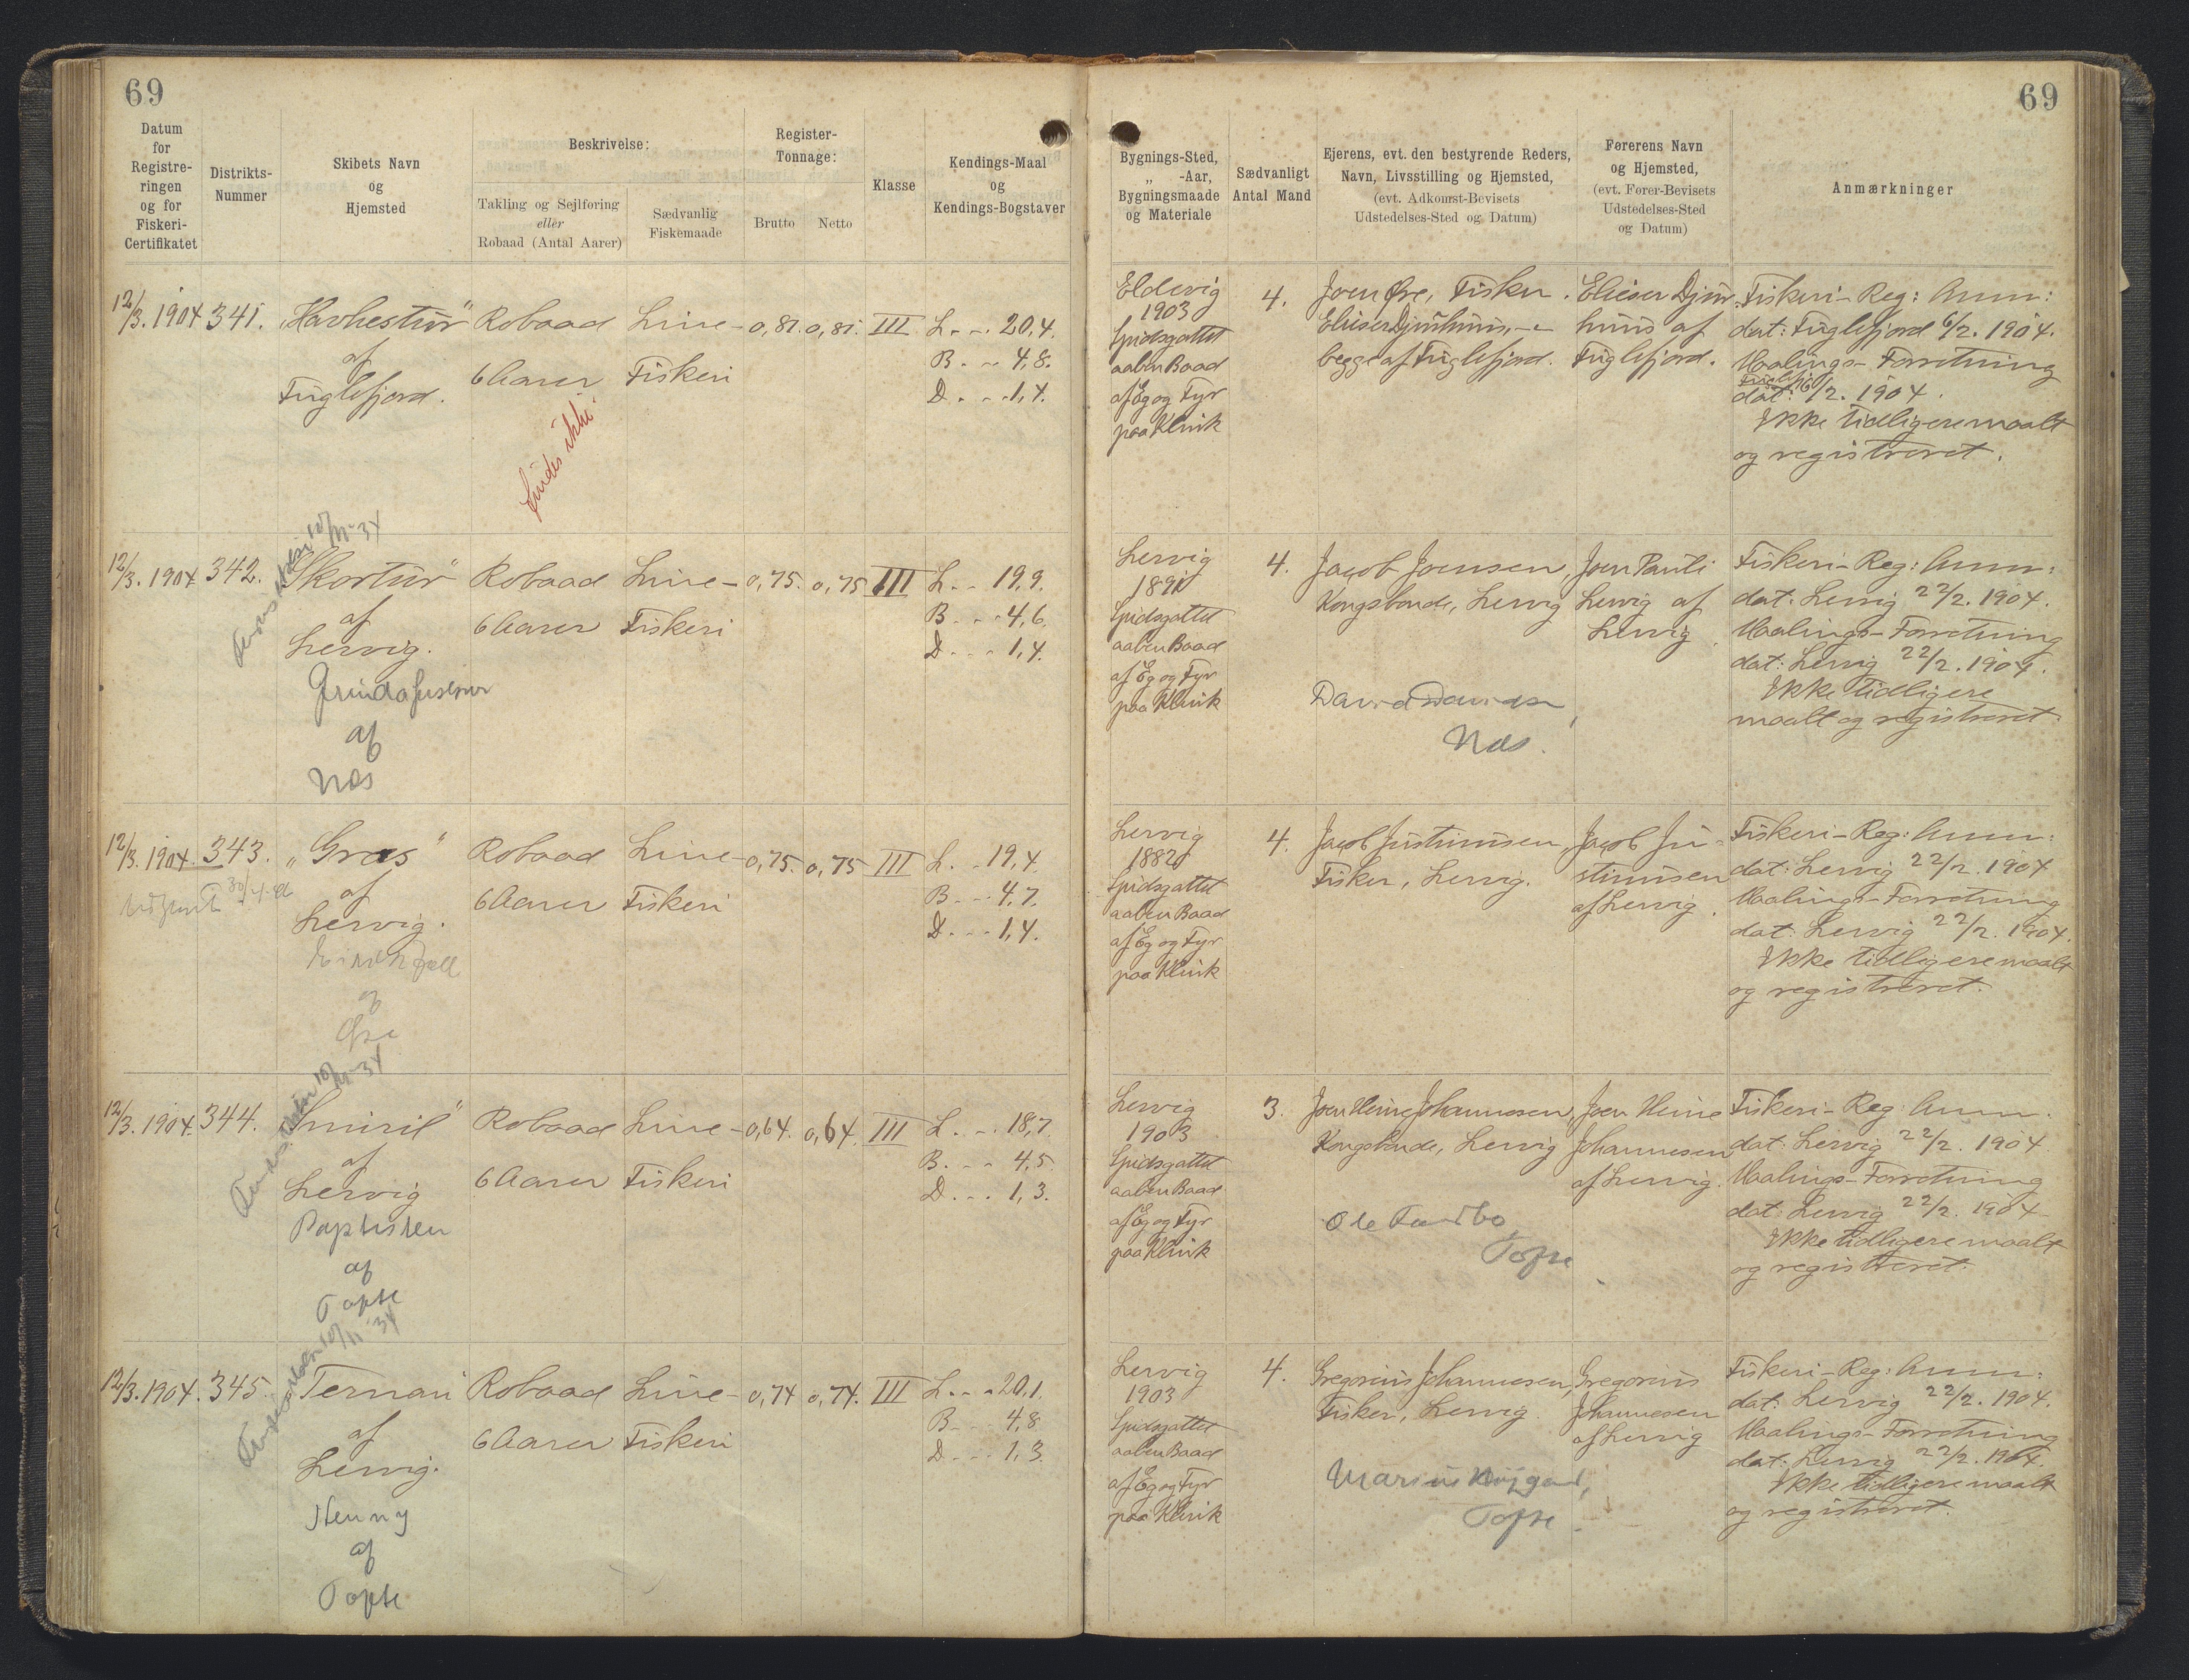 69
69
Datum
for
Registre-
ringen
og for
Fiskeri-
Certifikatet
Distrikts-
Nummer
Skibets Navn
og
Hjemsted
Beskrivelse:
Takling og Sejlføring
eller
Robaad (Antal Aarer)
Sædvanlig
Fiskemaade
Register-
Tonnage:
Brutto
Netto
Klasse
Kendings-Maal
og
Kendings-Bogstaver
Bygnings-Sted,
„ -Aar,
Bygningsmaade
og Materiale
Sædvanligt
Antal Mand
Ejerens, evt. den bestyrende Reders,
Navn, Livsstilling og Hjemsted,
(evt. Adkomst-Bevisets
Udstedelses-Sted og Datum)
Førerens Navn
og Hjemsted,
(evt. Fører-Bevisets
Udstedelses-Sted
og Datum)
Anmærkninger
12/3. 1904 341. „Havhestur" Robaad Line- 0,81. 0,81. III L. - . 20,4.
af
Fuglefjord.
6 Aarer Fiskeri
B. - 4,8.
D. - - 1,4.
findes ikke
Eldevig
1903
Spidsgattet
aaben Baad
af Eg og Fyr
paa Klink
4.
Joen Øre, Fisker.
begge af Fuglefjord.
Elieser Djur-
huus af
Fuglefjord.
Fiskeri-Reg: Anm:
dat: Fuglefjord 6/2. 1904.
Maalings-Forretning
dat: 6/2. 1904.
Ikke tidligere maalt
og registreret.
12/3. 1904 342. „Skortur" Robaad Line- 0,75. 0,75 III L. - - 19,9.
af
Lervig.
6 Aarer Fiskeri
B. - - 4,6.
D. - - 1,4.
10/11-34
af
Næs
Lervig
Spidsgattet
aaben Baad
af Eg og Fyr
paa Klink
4.
Jacob Joensen,
Kongsbonde, Lervig
Næs.
Joen Pauli
Lervig af
Lervig.
Fiskeri-Reg: Anm:
dat: Lervig 22/2. 1904.
Maalings-Forretning
dat: Lervig 22/2. 1904.
Ikke tidligere
maalt og registreret
12/3. 1904. 343. „Græs" Robaad Line- 0,75. 0,75 III L. - 19,4.
af
Lervig.
6 Aarer Fiskeri
B. - - 4,7.
D. - - 1,4.
af
Lervig
1882
Spidsgattet
aaben Baad
af Eg og Fyr
paa Klink
4.
Jacob Justinusen,
Fisker, Lervig.
Jacob Ju-
stinusen
af Lervig.
Fiskeri-Reg: Anm:
dat: Lervig 22/2. 1904
Maalings-Forretning
dat: Lervig 22/2. 1904.
Ikke tidligere maalt
og registreret.
12/3. 1904. 344. „Smiril" Robaad Line- 0,64. 0,64. III L. - . 18,7
af
Lervig
6 Aarer Fiskeri
B. - - 4,5.
D. - - 1,3.
10/11-34
Baptisten
af
Tofte
Lervig
1903
Spidsgattet
aaben Baad
af Eg og Fyr
paa Klink
3.
Joen Heine Johannesen,
Kongsbonde, Lervig
Tofte
Joen Heine
Johannesen
af Lervig.
Fiskeri-Reg: Anm:
dat: Lervig 22/2. 1904
Maalings-Forretning
dat: Lervig 22/2. 1904
Ikke tidligere maalt
og registreret.
12/3. 1904. 345. Ternan Robaad Line- 0,74 0,74. III L. - - 20,1.
af
Lervig.
6 Aarer Fiskeri
B. - - 4,8
D. - - 1,3.
10/11-34
Henny
af
Tofte
Lervig
1903
Spidsgattet
aaben Baad
af Eg og Fyr
paa Klink
4.
Gregorius Johannesen,
Fisker, Lervig
Tofte
Gregorius
Johannesen
af Lervig
Fiskeri-Reg: Anm:
dat: Lervig 22/2. 1904.
Maalings-Forretning
dat: Lervig 22/2. 1904.
Ikke tidligere maalt
og registreret.